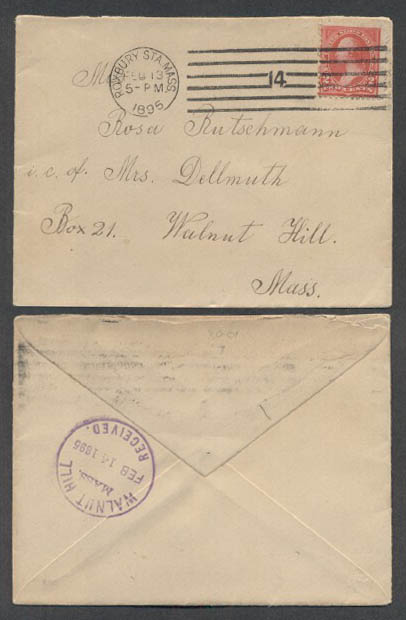 ROXBURY STA. MASS.
FEB 13
5-PM
1895
14
Rosa Rutschmann
i.c. of. Mrs. Dellmuth
Box 21. Walnut Hill.
Mass.
WALNUT HILL
MASS.
FEB 14 1895
RECEIVED.